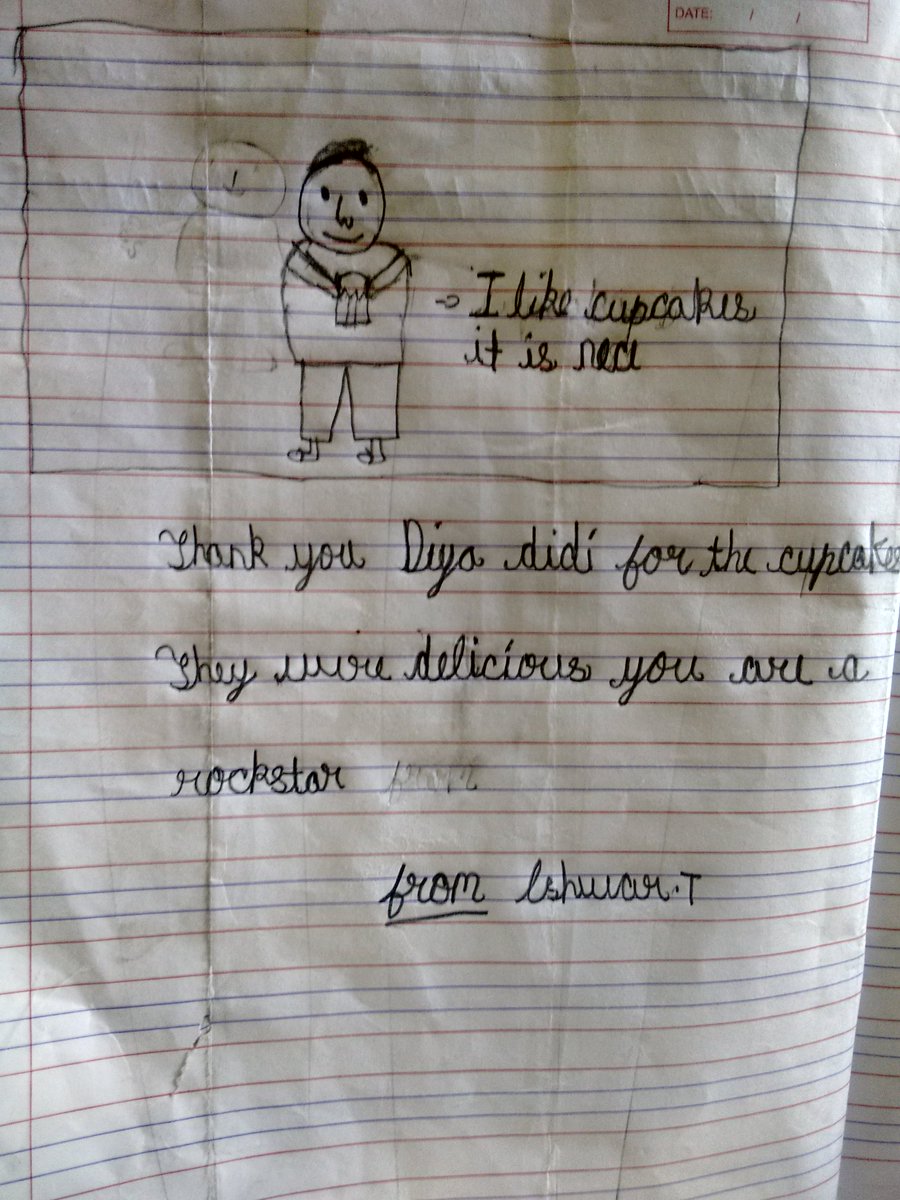 DATE: / /
I like cupcakes
it is red
Thank you Diya didi for the cupcakes
They were delicious you are a
rockstar from
from Eshwar.T